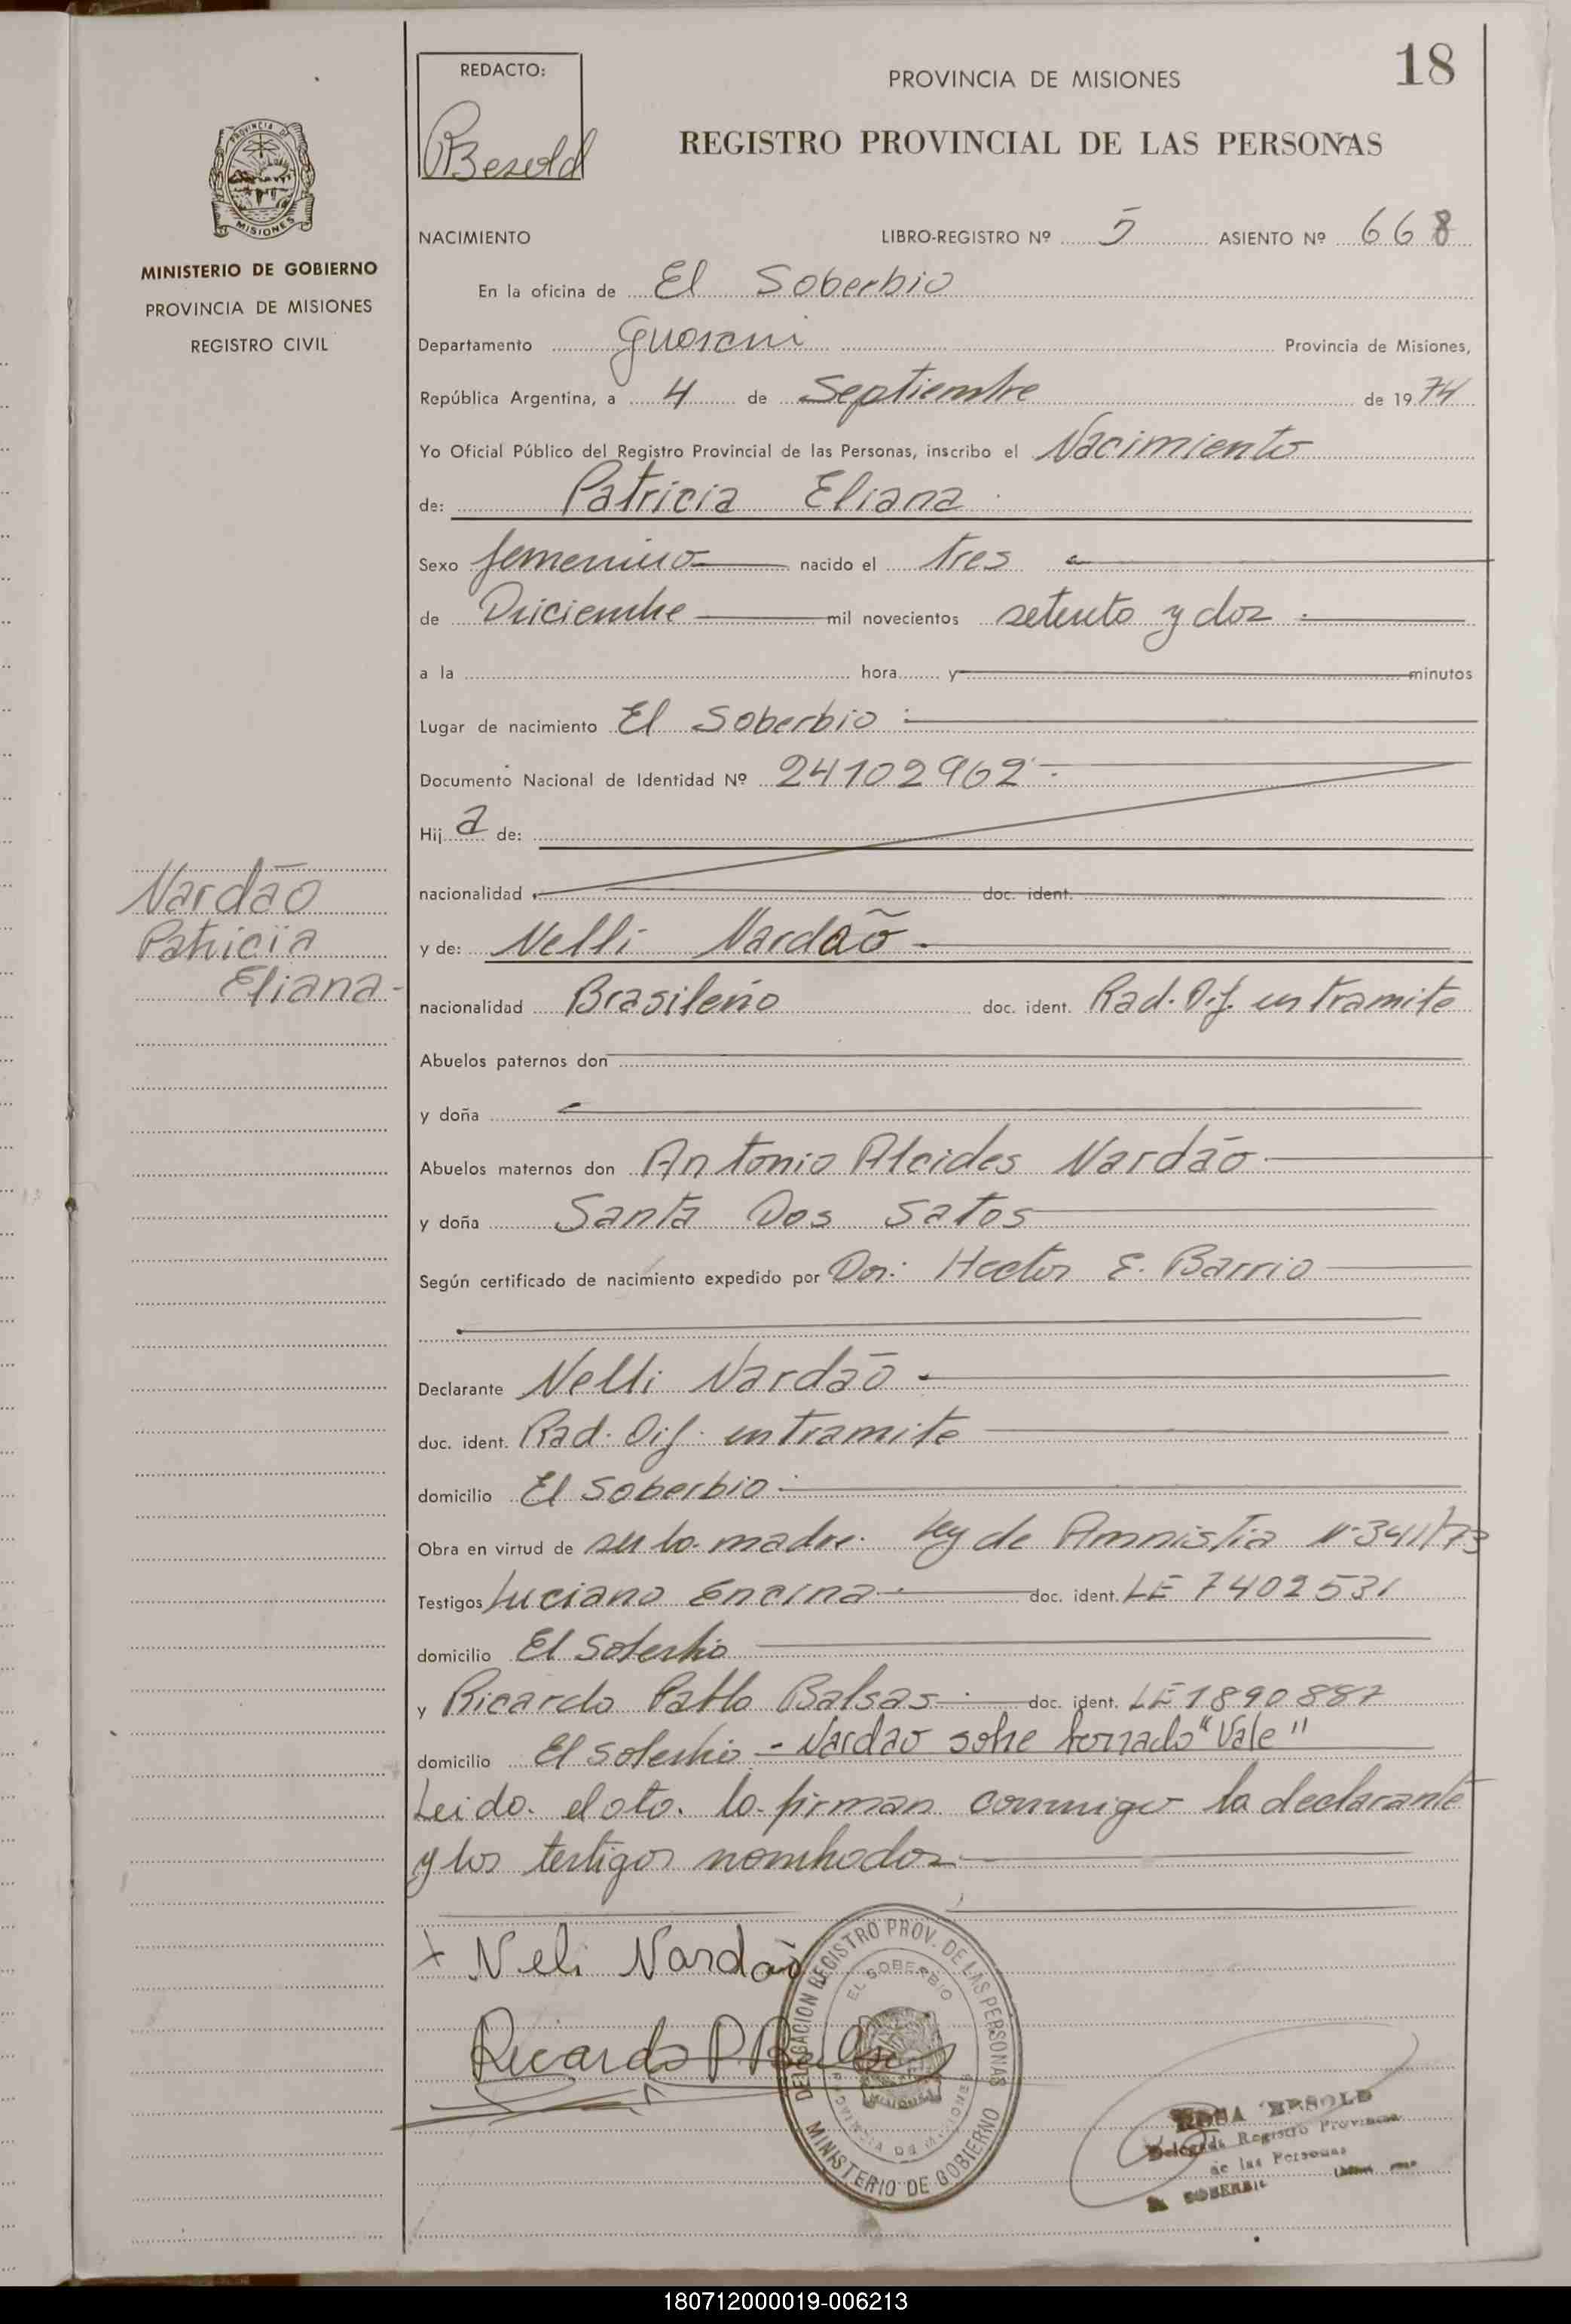 18
REDACTO:
RBesold
PROVINCIA DE MISIONES
REGISTRO PROVINCIAL DE LAS PERSONAS
PROVINCIA DE
MISIONES
MINISTERIO DE GOBIERNO
PROVINCIA DE MISIONES
REGISTRO CIVIL
NACIMIENTO LIBRO-REGISTRO Nº 5 ASIENTO Nº 668
En la oficina de El Soberbio
Departamento Guarani Provincia de Misiones,
República Argentina, a 4 de Septiembre de 1974
Yo Oficial Público del Registro Provincial de las Personas, inscribo el Nacimiento
de: Patricia Eliana
Sexo femenino nacido el tres
de Diciembre mil novecientos setenta y dos
a la hora y minutos
Lugar de nacimiento El Soberbio
Documento Nacional de Identidad Nº 24102962
Hij a de:
nacionalidad doc. ident.
Nardão
Patricia
Eliana-
y de: Nelli Nardão
nacionalidad Brasileño doc. ident. Rad. Dif. en tramite
Abuelos paternos don
y doña
Abuelos maternos don Antonio Alcides Nardão
y doña Santa Dos Satos
Según certificado de nacimiento expedido por Dor: Hector E. Barrio
Declarante Nelli Nardão
doc. ident. Rad. Dif. en tramite
domicilio El Soberbio
Obra en virtud de ser la madre. Ley de Amnistia Nº 3411/73
Testigos Luciano Encina doc. ident. LE 7402531
domicilio El Soberbio
y Ricardo Pablo Balsas doc. ident. LE 1890887
domicilio El Soberbio - Nardao sobre borrado "Vale"
Leido el ata. la firman conmigo la declarante
y los testigos nombrados
+ Neli Nardaò
Ricardo P. Balsas
DELEGACION REGISTRO PROV. DE LAS PERSONAS
EL SOBERBIO
PROVINCIA DE MISIONES
MINISTERIO DE GOBIERNO
ROSA BESOLD
Delegada Registro Provincial
de las Personas
EL SOBERBIO
180712000019-006213